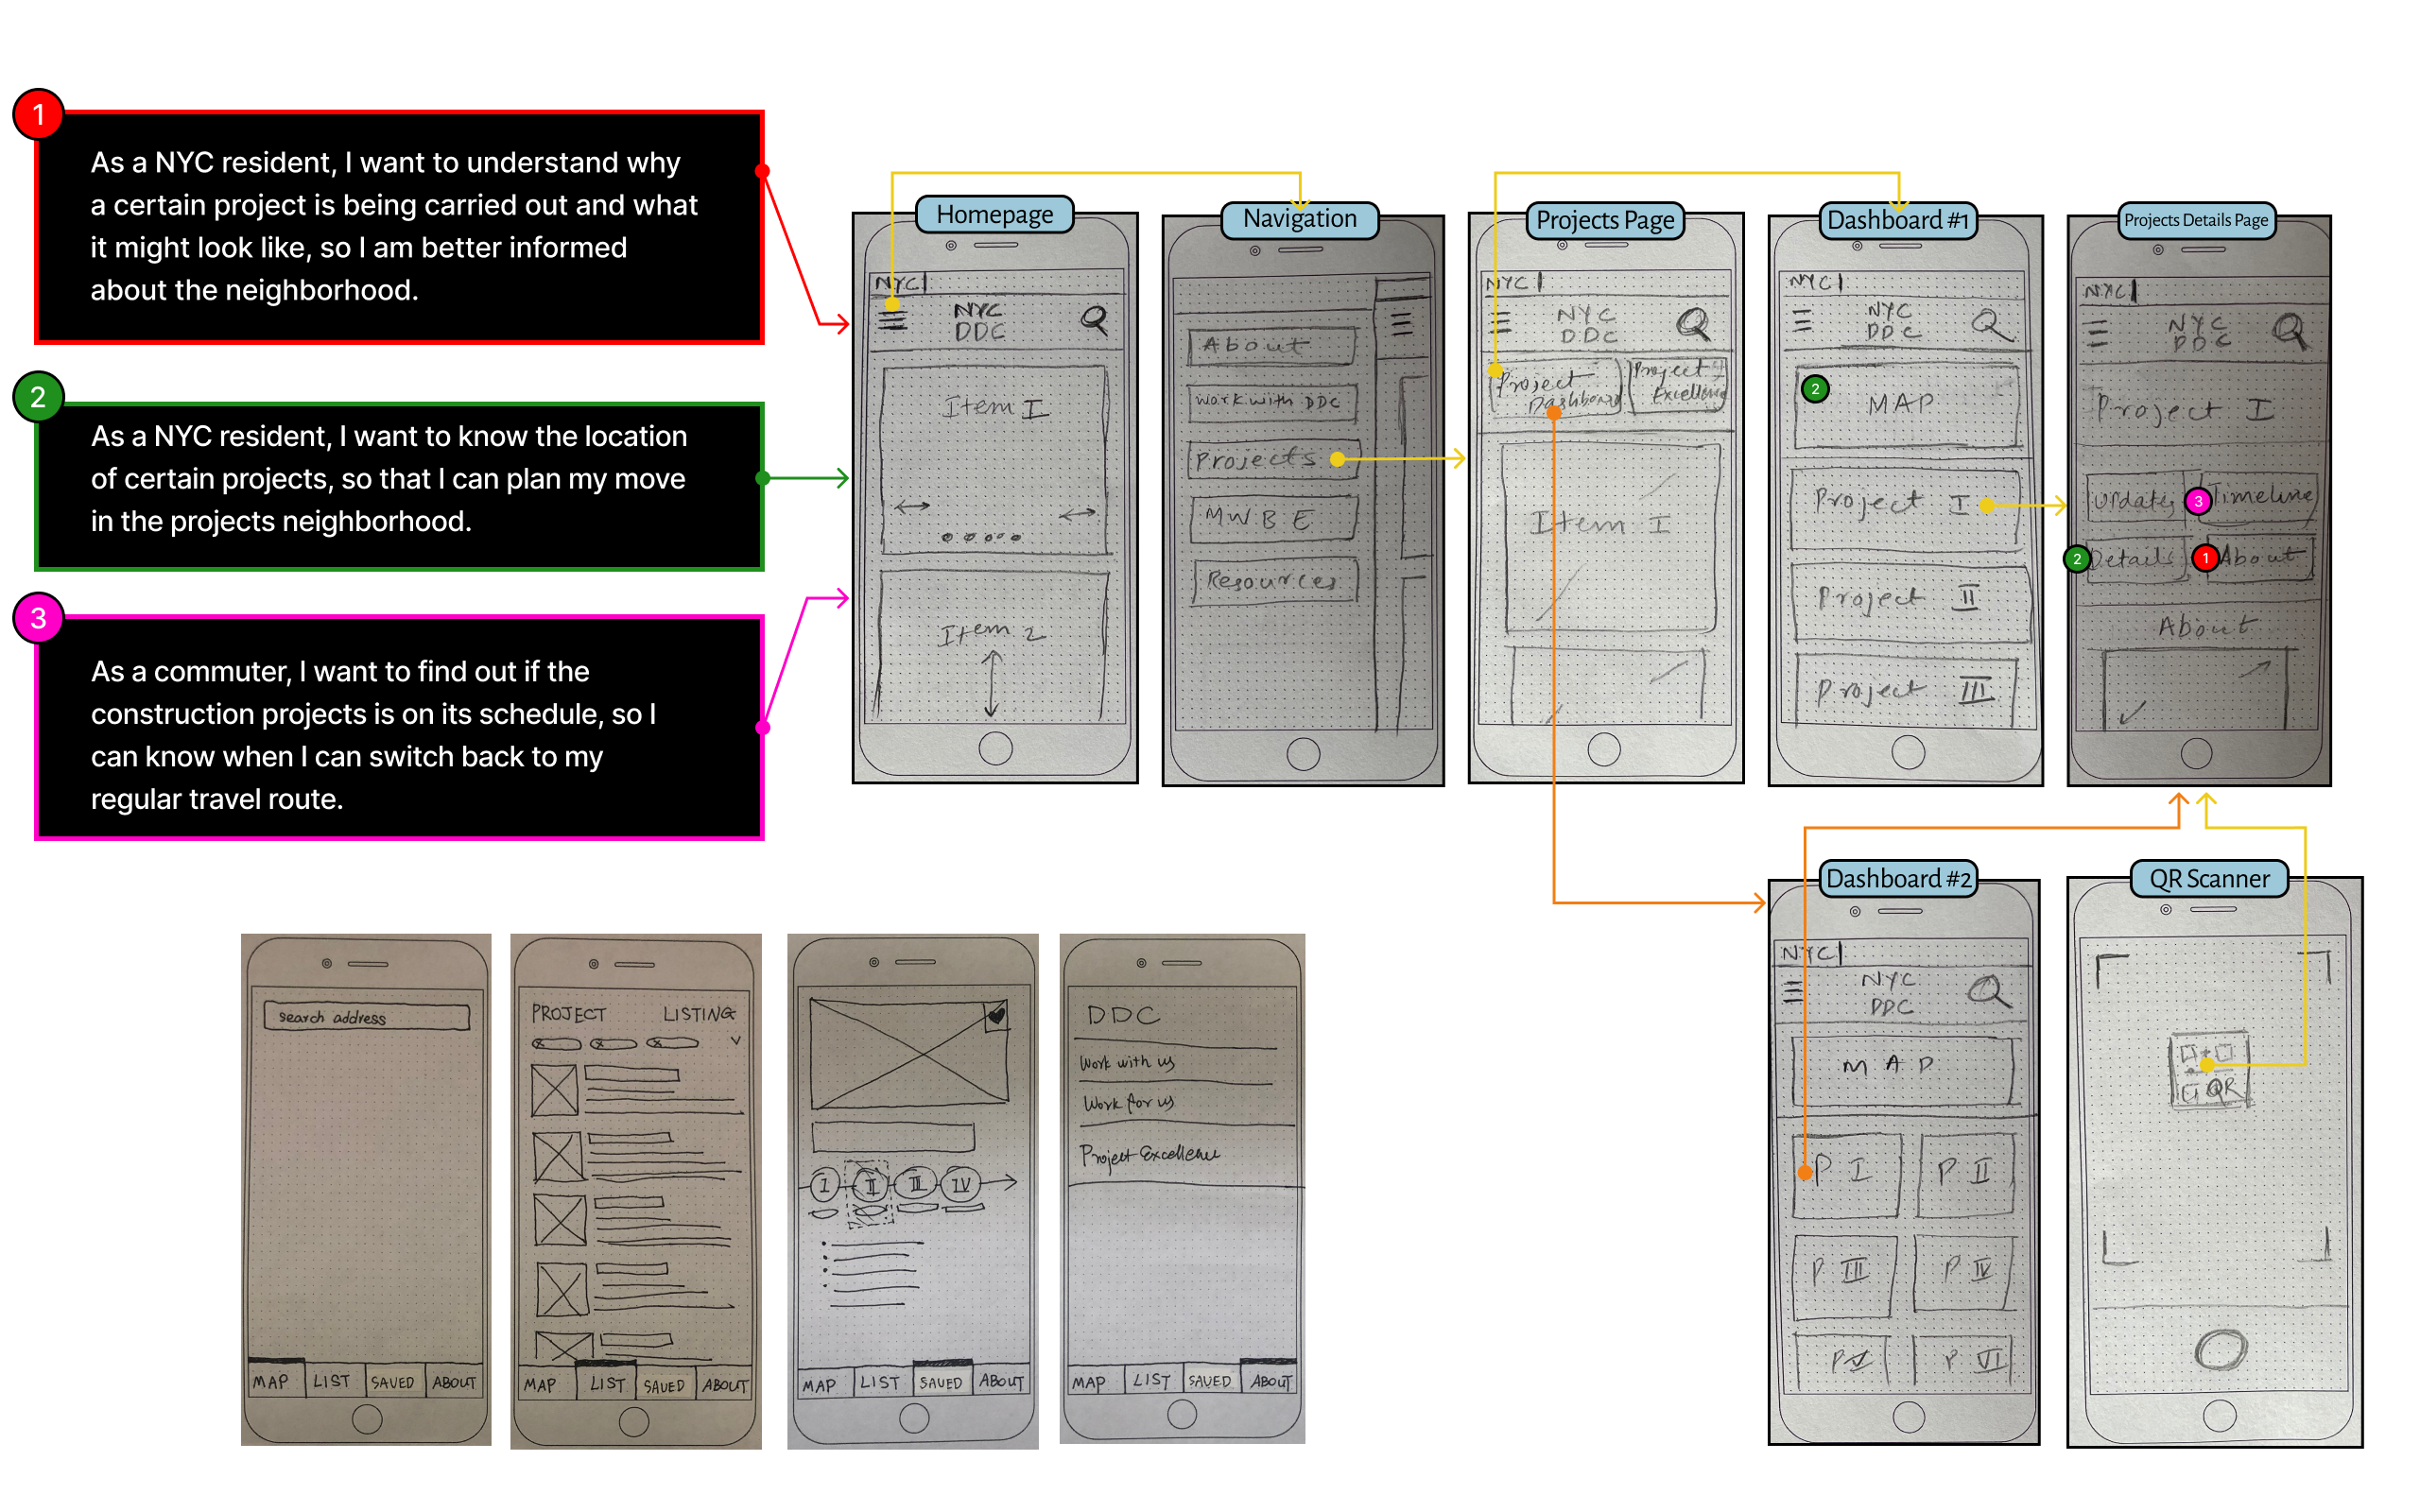 1
As a NYC resident, I want to understand why
a certain project is being carried out and what
it might look like, so I am better informed
about the neighborhood.
2
As a NYC resident, I want to know the location
of certain projects, so that I can plan my move
in the projects neighborhood.
3
As a commuter, I want to find out if the
construction projects is on its schedule, so I
can know when I can switch back to my
regular travel route.
Homepage
NYC
NYC
DDC
Item I
Item 2
Navigation
About
Work with DDC
Projects
MWBE
Resources
Projects Page
NYC
NYC
DDC
Project
Dashboard
Project
Excellence
Item I
Dashboard #1
NYC
NYC
DDC
2
MAP
Project I
Project II
Project III
Projects Details Page
NYC
NYC
DDC
Project I
Updates
3
Timeline
2
Details
1
About
About
Dashboard #2
NYC
NYC
DDC
MAP
P I
P II
P III
P IV
P V
P VI
QR Scanner
QR
search address
MAP LIST SAVED ABOUT
PROJECT LISTING
MAP LIST SAVED ABOUT
I II III IV
MAP LIST SAVED ABOUT
DDC
Work with us
Work for us
Project Excellence
MAP LIST SAVED ABOUT